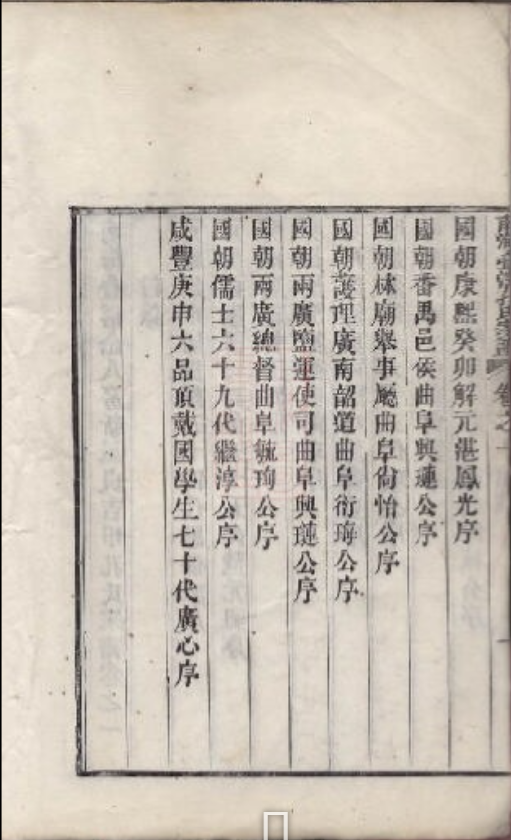 國朝康熙癸卯解元湛鳳光序
國朝番禺邑侯曲阜興璉公序
國朝林廟舉事廳曲阜尙怡公序
國朝護理廣南韶道曲阜衍璹公序
國朝兩廣鹽運使司曲阜興璉公序
國朝兩廣總督曲阜毓珣公序
國朝儒士六十九代繼淳公序
咸豐庚申六品頂戴國學生七十代廣心序